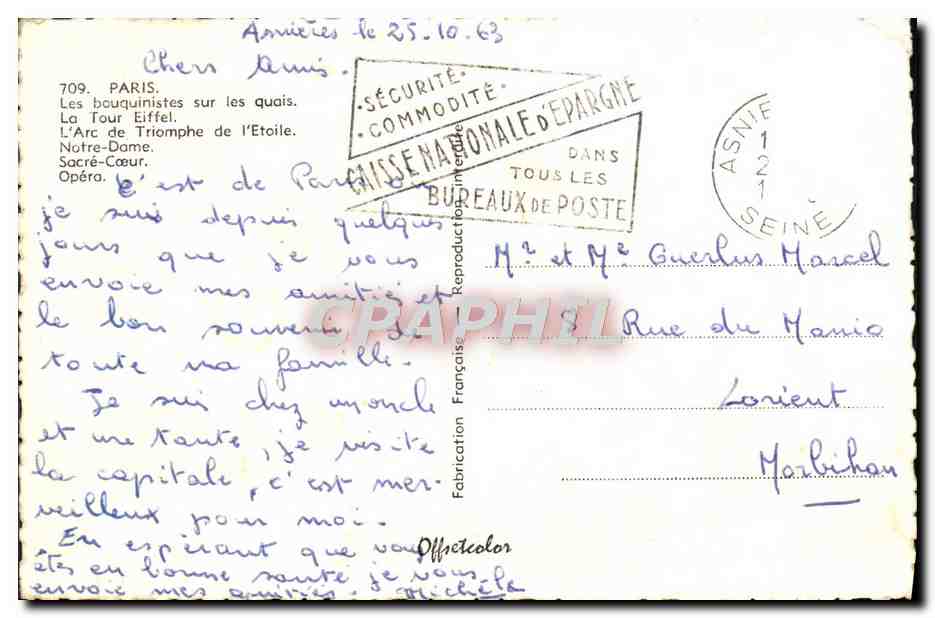 Asnières le 25-10-63
Chers Amis.
709. PARIS.
Les bouquinistes sur les quais.
La Tour Eiffel.
L'Arc de Triomphe de l'Etoile.
Notre-Dame.
Sacré-Cœur.
Opéra.
·SÉCURITÉ·
·COMMODITÉ·
CAISSE NATIONALE D'ÉPARGNE
DANS
TOUS LES
BUREAUX DE POSTE
ASNIE
1
2
1
SEINE
c'est de Paris où
je suis depuis quelques
jours que je vous
envoie mes amitiés et
le bon souvenir de
toute ma famille.
Je suis chez un oncle
et une tante, je visite
la capitale, c'est mer-
veilleux pour moi.
En espérant que vous
êtes en bonne santé je vous
envoie mes amitiés. Michèle
Fabrication Française - Reproduction interdite
Offsetcolor
CPAPHIL
Mr et Me Guerlus Marcel
8 Rue du Manio
Lorient
Morbihan